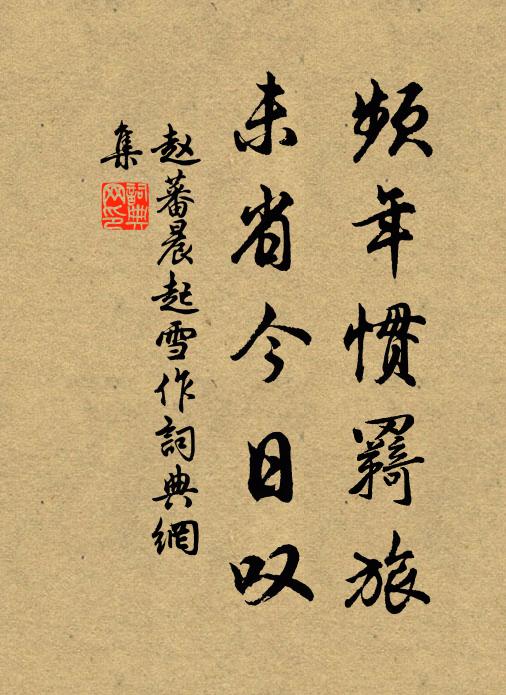 频年惯羁旅
未省今日叹
赵蕃晨起雪作詞典網
集
詞典網印